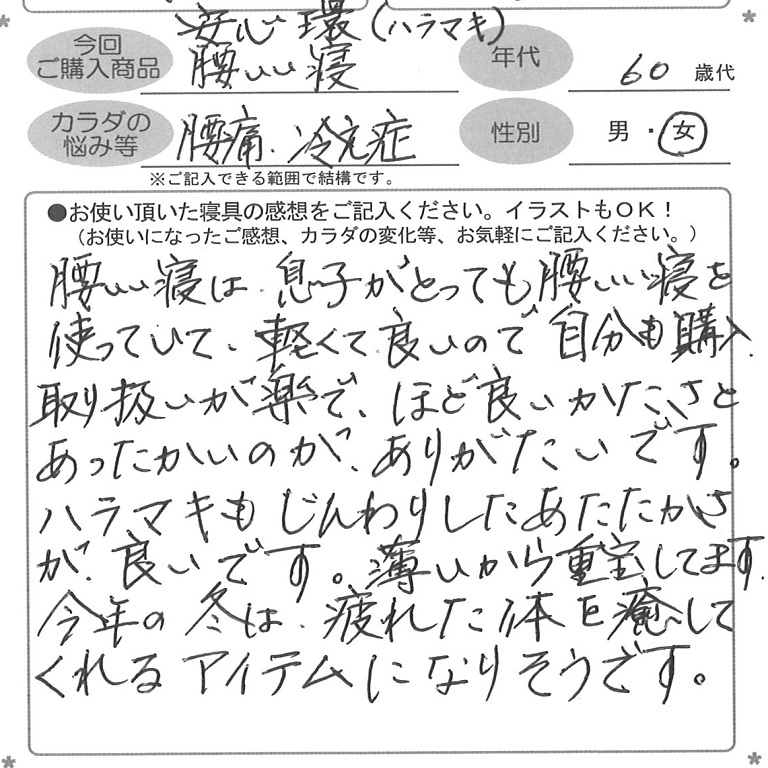 安心環(ハラマキ)
今回
ご購入商品
腰いい寝
年代
60 歳代
カラダの
悩み等
腰痛.冷え症
性別
男・女
※ご記入できる範囲で結構です。
●お使い頂いた寝具の感想をご記入ください。イラストもOK!
(お使いになったご感想、カラダの変化等、お気軽にご記入ください。)
腰いい寝は、息子がとっても腰いい寝を
使っていて、軽くて良いので自分も購入.
取り扱いが楽で、ほど良いかたさと
あったかいのが、ありがたいです。
ハラマキもじんわりしたあたたかさ
が、良いです。薄いから重宝してます.
今年の冬は、疲れた体を癒して
くれるアイテムになりそうです。